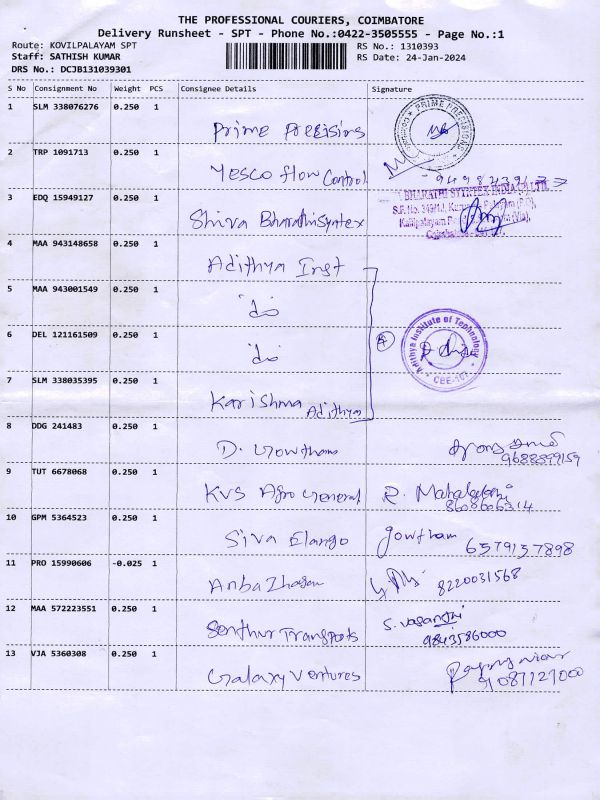 THE PROFESSIONAL COURIERS, COIMBATORE
Delivery Runsheet - SPT - Phone No.:0422-3505555 - Page No.:1
Route: KOVILPALAYAM SPT
Staff: SATHISH KUMAR
DRS No.: DCJB131039301
RS No.: 1310393
RS Date: 24-Jan-2024
S No Consignment No Weight PCS Consignee Details Signature
1 SLM 338076276 0.250 1 Prime Precisins
PRIME PRECISIONS
2 TRP 1091713 0.250 1 Yesco flow Control
3 EDQ 15949127 0.250 1 Shiva Bharathi Syntex
BHARATHI SYNTEX INDIA
4 MAA 943148658 0.250 1 Adithya Inst
5 MAA 943001549 0.250 1 do
6 DEL 121161509 0.250 1 do
4
Adithya Institute of Technology
CBE-107
7 SLM 338035395 0.250 1 Karishma Adithya
8 DDG 241483 0.250 1 D. Gowtham
9688899159
9 TUT 6678068 0.250 1 KVS Agro General R. Mahalakshmi
10 GPM 5364523 0.250 1 Siva Elango gowtham
6379157898
11 PRO 15990606 -0.025 1 Anbazhagan 8220031568
12 MAA 572223551 0.250 1 Senthur Transports S. Vasanthi
9843586000
13 VJA 5360308 0.250 1 Galaxy Ventures